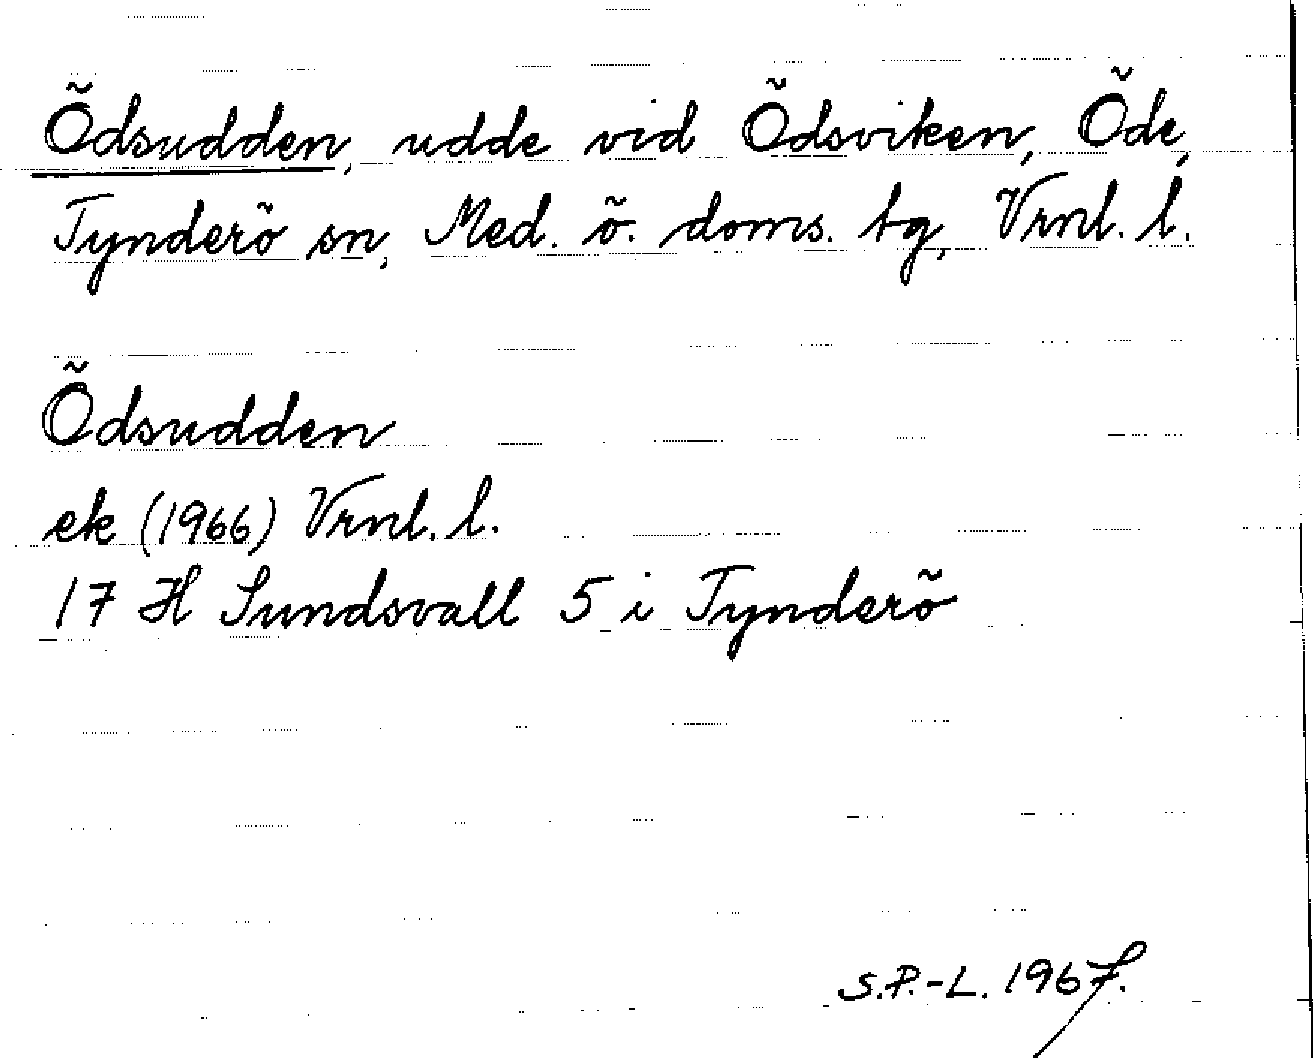 Õdsudden, udde vid Õdsviken, Õde,
Tynderõ sn, Med. õ. doms. tg, Vrnl. l.
Õdsudden
ek (1966) Vrnl. l.
17 H Sundsvall 5 i Tynderõ
S.P.-L. 1967.